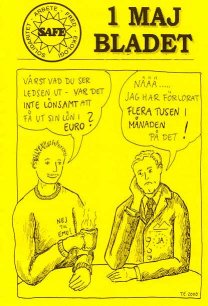 ARBETE
SOLIDARITET
EKOLOGI
SAFE
1 MAJ
BLADET
VÄRST VAD DU SER
LEDSEN UT - VAR DET
INTE LÖNSAMT ATT
FÅ UT SIN LÖN I
EURO?
NÄÄÄ.....
JAG HAR FÖRLORAT
FLERA TUSEN I
MÅNADEN
PÅ DET!
NEJ
TILL
EMU!
JA
TE 2000